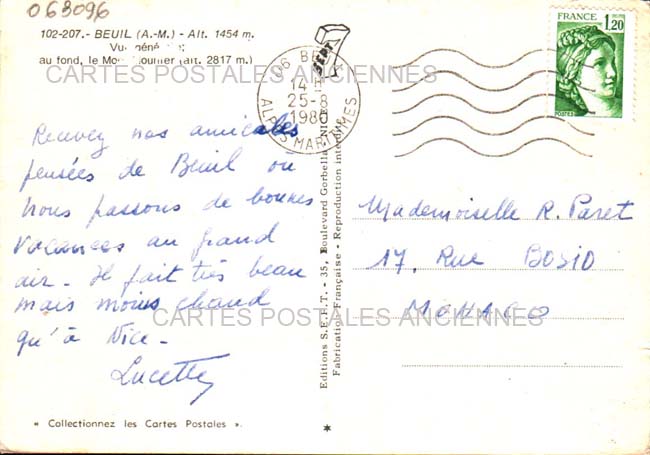 063096
102-207.- BEUIL (A.-M.) - Alt. 1454 m.
au fond, le Mounier (alt. 2817 m.)
CARTES POSTALES ANCIENNES
Recevez nos amicales
pensées de Beuil où
nous passons de bonnes
vacances au grand
air - Il fait très beau
mais moins chaud
qu'à Nice -
Lucette
« Collectionnez les Cartes Postales ».
Editions S.E.P.T. - 35, Boulevard Gorbella
Fabrication Française - Reproduction interdite
SEPT
06 BEUIL
14 H
25-8
1980
ALPES MARITIMES
FRANCE
1,20
POSTES
Mademoiselle R. Paret
17, Rue BOSIO
MONACO
CARTES POSTALES ANCIENNES